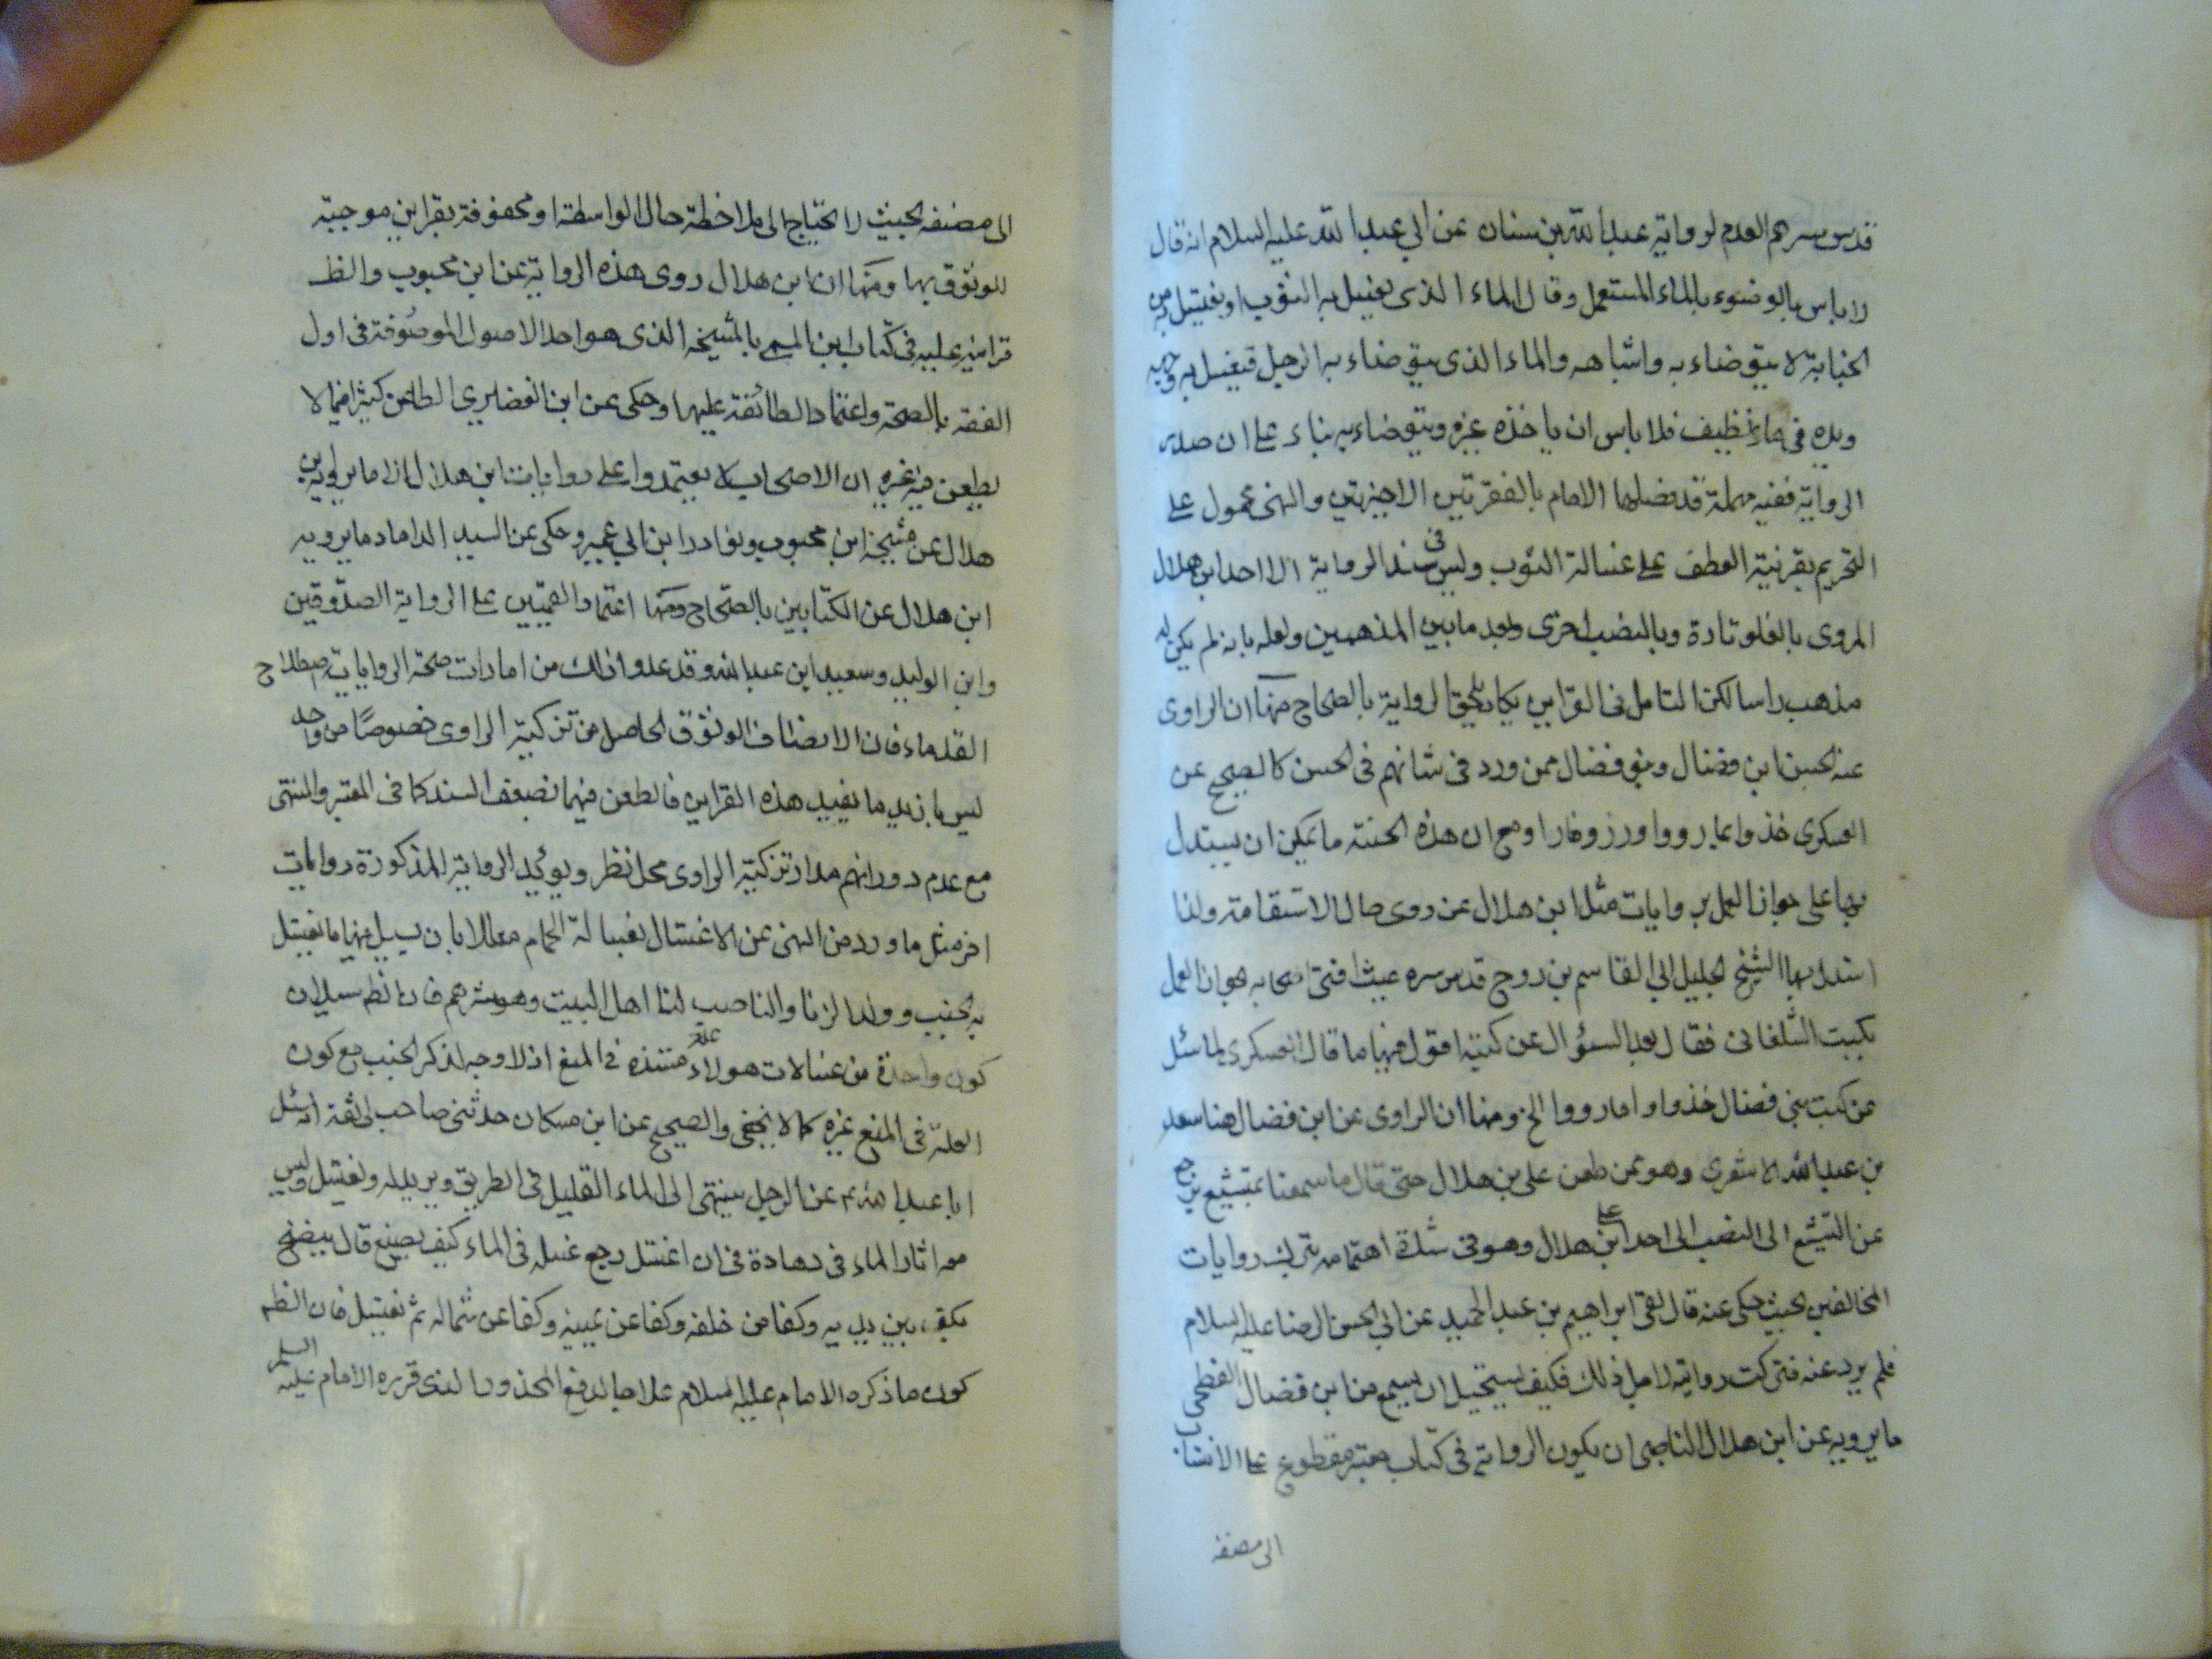 قدس سرهم العدم لرواية عبد الله بن سنان عن ابي عبد الله عليه السلام انه قال
لا باس بالوضوء بالماء المستعمل وقال الماء الذى يغسل به الثوب او يغتسل به من
الجنابة لا يتوضاء به واشباهه والماء الذى يتوضاء به الرجل فيغسل به وجهه
ويده فى ماء نظيف فلا باس ان ياخذه غيره ويتوضاء به بناء على ان صدر
الرواية قضية مهملة قد فصلها الامام بالفقرتين الاخيرتين والنهى محمول على
التحريم بقرنية العطف على غسالة الثوب وليس فى سند الرواية الا احد ابن هلال
المروى بالغلو تارة وبالنصب اخرى وبعد ما بين المذهبين ولعله بانه لم يكن له
مذهب راسا لكن التامل فى القراين يكاد يلحق الرواية بالصحاح منها ان الراوى
عنه الحسن ابن فضال وبنو فضال ممن ورد فى شانهم فى الحسن كالصحيح عن
العسكرى خذوا بما رووا وذروا ما راوا ومع ان هذه الحسنة ما يمكن ان يستدل
بها على جواز العمل بروايات مثل ابن هلال عن روى حال الاستقامة ولذا
استدل بها الشيخ الجليل ابي القاسم بن روح قدس سره حيث افتى اصحابه بجواز العمل
بكتب الشلغانى فقال بعد السؤال عن كتبه اقول فيها ما قال العسكرى لما سئل
عن كتب بنى فضال خذوا ما رووا الخ ومنها ان الراوى عن ابن فضال هنا سعد
بن عبد الله الاشعرى وهو ممن طعن على بن هلال حتى قال ما سمعنا بمتشيع يرجع
عن التشيع الى النصب الى احد ابن هلال وهو فى شدة اهتمامه بترك روايات
المخالفين بحيث حكى عنه قال لقى ابراهيم بن عبد الحميد عن ابي الحسن الرضا عليه السلام
فلم يرو عنه فتركت روايته لاجل ذلك فكيف يستحيل ان يسمع من ابن فضال الفطحى
ما يرويه عن ابن هلال الناصبى ان يكون الرواية فى كتاب معتبر مقطوع على الانتساب
الى مصنفه
الى مصنفه بحيث لا يحتاج الى ملاحظة حال الواسطة او محفوفة بقراين موجبة
للوثوق بها ومنها ان ابن هلال روى هذه الرواية عن ابن محبوب والظ
قرائته عليه فى كتاب ابن المسمى بالمشيخه الذى هو احد الاصول الموصوفة فى اول
الفقه بالصحة واعتماد الطائفة عليها وحكى عن ابن الغضايرى الطاعن كثيرا فيما لا
يطعن فيه غيره ان الاصحاب لا يعتمدوا على روايات ابن هلال الا ما يرويه ابن
هلال عن مشيخة ابن محبوب ونوادر ابن ابي عمير وحكى عن السيد الداماد ما يرويه
ابن هلال عن الكتابين بالصحاح ومنها اعتماد القميين على الرواية الصدوقين
وابن الوليد وسعيد ابن عبد الله وقد عدوا ذلك من امارات صحة الروايات باصطلاح
القدماء فان الانصاف الوثوق الحاصل من تزكية الراوى خصوصًا من واحد
ليس بازيد ما يفيد هذه القراين فالطعن فيهما بضعف السند كما فى المعتبر والمنتهى
مع عدم دورانهم مدار تزكية الراوى محل نظر ويويد الرواية المذكورة روايات
اخر مثل ما ورد من النهى عن الاغتسال بغسالة الحمام معللا بان يسيل فيها ما يغتسل
به الجنب وولد الزنا والناصب لنا اهل البيت وهو شرهم فان الظم سيلان
كون واحدة من غسالات هولاء علة مستنده فى المنع اذ لا وجه لذكر الجنب مع كون
العلة فى المنع غيره كما لا يخفى والصحيح عن ابن مسكان حدثنى صاحب لى ثقة انه سئل
ابا عبد الله عم عن الرجل ينتهى الى الماء القليل فى الطريق ويريد ان يغتسل وليس
معه اناء والماء فى وهادة فان اغتسل رجع غسله فى الماء كيف يصنع قال ينضح
بكف بين يديه وكفا من خلفه وكفا عن يمينه وكفا عن شماله ثم يغتسل فان الظم
كون ما ذكره الامام عليه السلام علاجا لدفع المحذور الذى قرره الامام عليه السلم